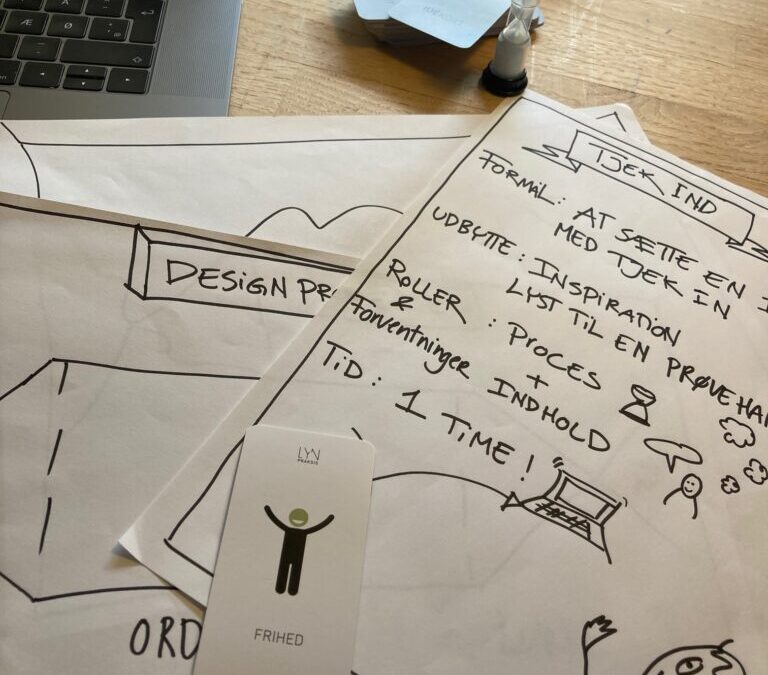 TJEK IND
FORMÅL: AT SÆTTE EN
MED TJEK IN
UDBYTTE: INSPIRATION
LYST TIL EN PRØVEHAN
ROLLER
&
Forventninger : PROCES
+
INDHOLD
TiD: 1 TiME!
DESIGN PR
LYN
PRAKSIS
FRIHED
ORD
Æ
Ø
Å